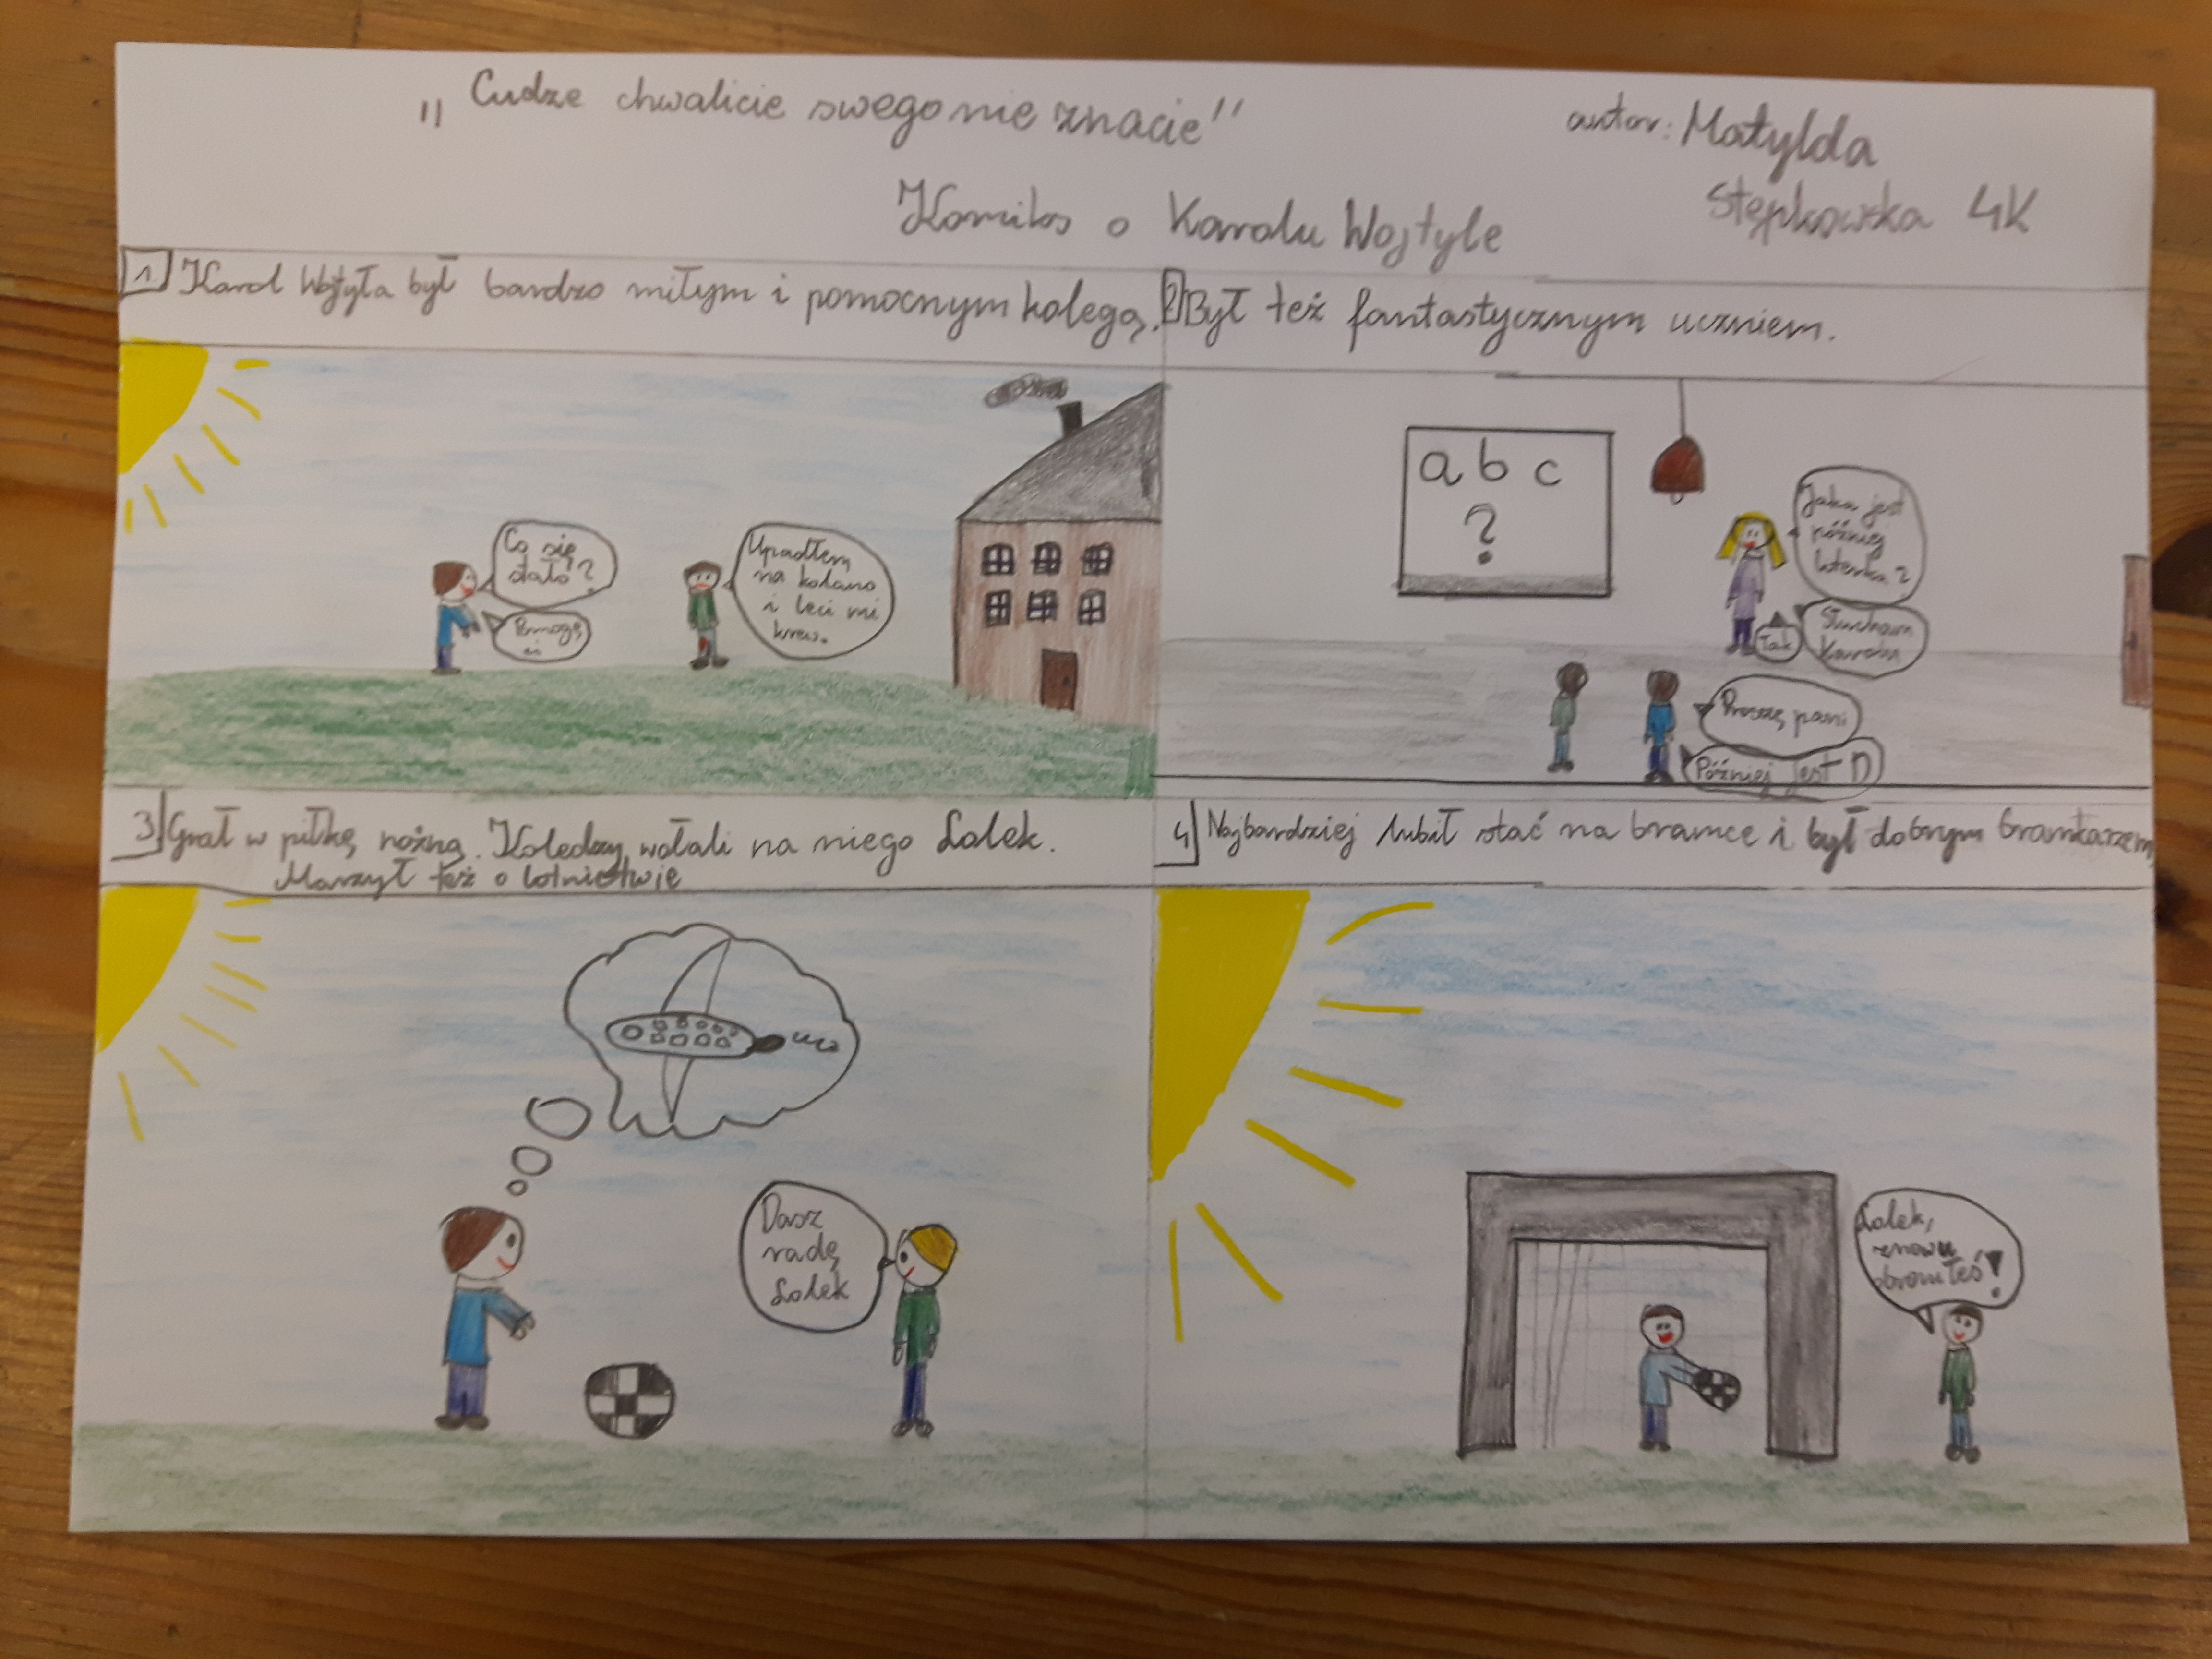 „Cudze chwalicie swego nie znacie"
autor: Matylda
Stępkowska 4K
Komiks o Karolu Wojtyle
1 Karol Wojtyła był bardzo miłym i pomocnym kolegą.
Co się
stało?
Pomogę
ci
Upadłem
na kolano
i leci mi
krew.
2 Był też fantastycznym uczniem.
a b c
?
Jaka jest
później
literka?
Proszę pani
Słucham
Karolu
Tak
Później jest D
3 Grał w piłkę nożną. Koledzy wołali na niego Lolek.
Marzył też o lotnictwie
Dasz
radę
Lolek
4 Najbardziej lubił stać na bramce i był dobrym bramkarzem
Lolek,
znowu
obroniłeś!